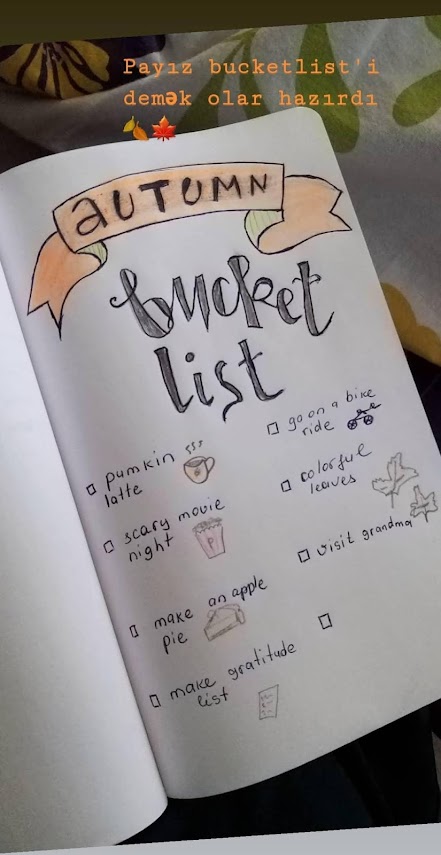 Payız bucketlist'i
demək olar hazırdı
AUTUMN
bucket
list
pumkin
latte
scary movie
night
make an apple
pie
make gratitude
list
go on a bike
ride
colorful
leaves
visit grandma